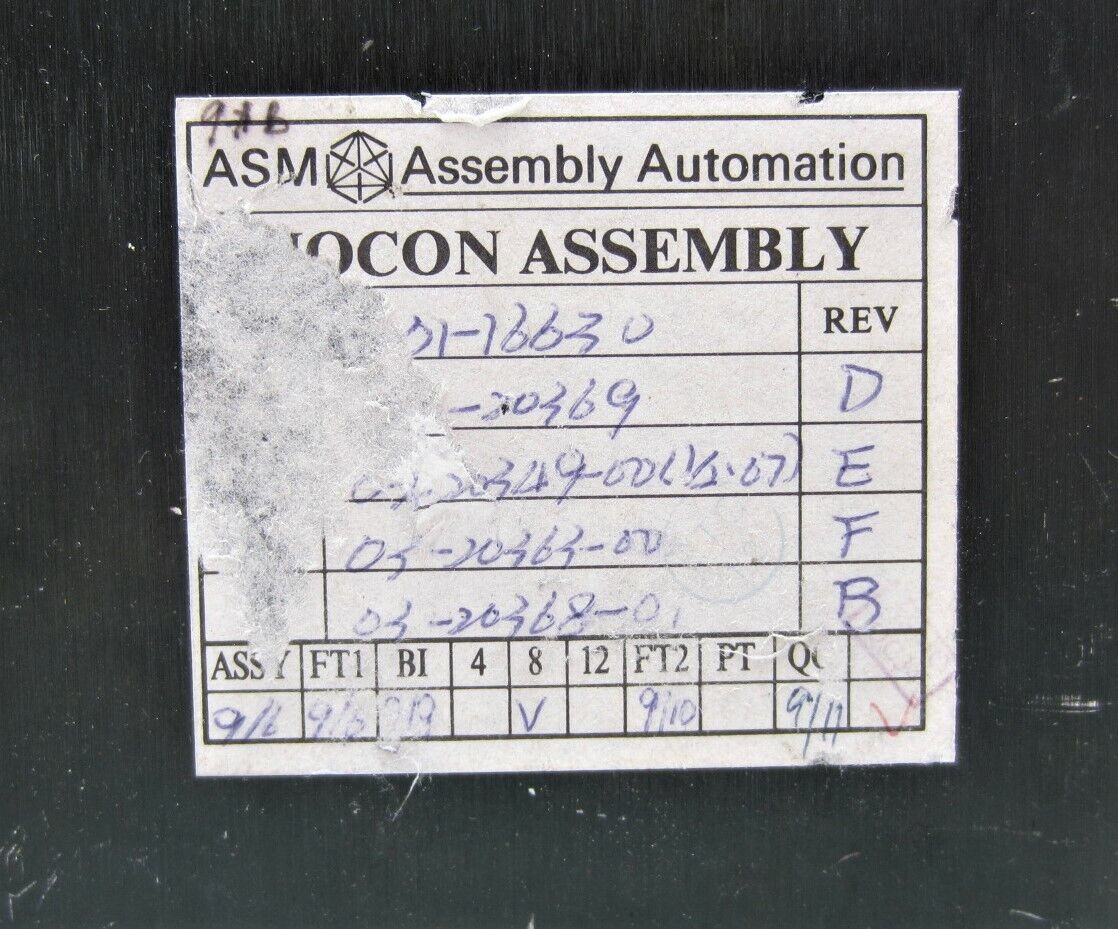 ASM Assembly Automation
OCON ASSEMBLY
01-16630 REV
-20369 D
03-20349-00(V4.07) E
03-20363-00 F
03-20368-01 B
ASSY FT1 BI 4 8 12 FT2 PT QC
9/6 9/6 9/9 V 9/10 9/11